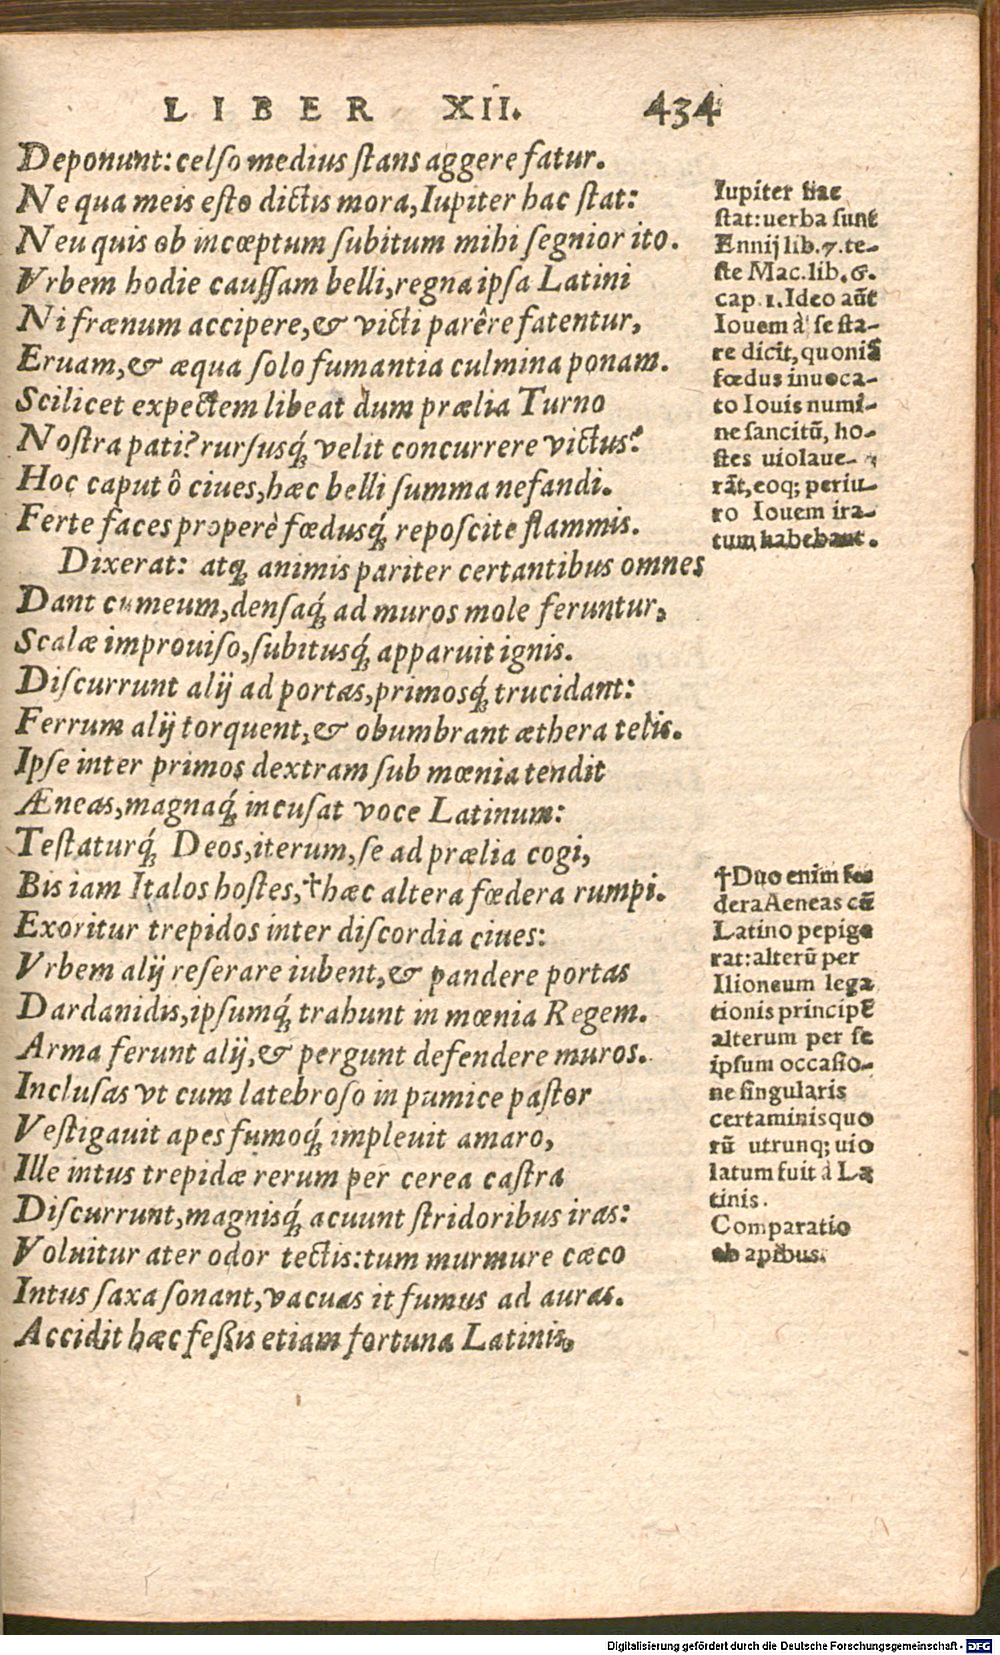 LIBER XII. 434
Deponunt: celso medius stans aggere fatur.
Ne qua meis esto dictis mora, Iupiter hac stat:
Neu quis ob incœptum subitum mihi segnior ito.
Vrbem hodie caussam belli, regna ipsa Latini
Ni frænum accipere, & victi parêre fatentur,
Eruam, & æqua solo fumantia culmina ponam.
Scilicet expectem libeat dum prælia Turno
Nostra pati? rursusq́; velit concurrere victus?
Hoc caput ô ciues, hæc belli summa nefandi.
Ferte faces properè fœdusq́; reposcite flammis.
Dixerat: atq; animis pariter certantibus omnes
Dant cumeum, densaq́; ad muros mole feruntur,
Scalæ improuiso, subitusq́; apparuit ignis.
Discurrunt alij ad portas, primosq́; trucidant:
Ferrum alij torquent, & obumbrant æthera telis.
Ipse inter primos dextram sub mœnia tendit
Æneas, magnaq́; incusat voce Latinum:
Testaturq́; Deos, iterum, se ad prælia cogi,
Bis iam Italos hostes, †hæc altera fœdera rumpi.
Exoritur trepidos inter discordia ciues:
Vrbem alij reserare iubent, & pandere portas
Dardanidis, ipsumq́; trahunt in mœnia Regem.
Arma ferunt alij, & pergunt defendere muros.
Inclusas vt cum latebroso in pumice pastor
Vestigauit apes fumoq́; impleuit amaro,
Ille intus trepidæ rerum per cerea castra
Discurrunt, magnisq́; acuunt stridoribus iras:
Voluitur ater odor tectis: tum murmure cæco
Intus saxa sonant, vacuas it fumus ad auras.
Accidit hæc feßis etiam fortuna Latinis,
Iupiter hac
stat: uerba sunt
Ennij lib. 7. te-
ste Mac. lib. 6.
cap. 1. Ideo aūt
Iouem à se sta-
re dicit, quoniā
fœdus inuoca-
to Iouis numi-
ne sancitū, ho-
stes uiolaue-
rāt, eoq; periu-
ro Iouem ira-
tum habebant.
†Duo enim fœ
dera Aeneas cū
Latino pepige
rat: alterū per
Ilioneum lega
tionis principē
alterum per se
ipsum occasio-
ne singularis
certaminis quo
rū utrunq; uio
latum fuit à La
tinis.
Comparatio
ab apibus.
Digitalisierung gefördert durch die Deutsche Forschungsgemeinschaft - DFG